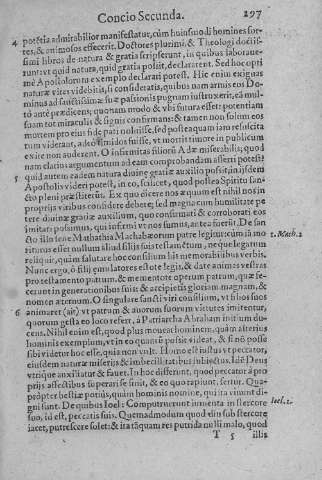 Concio Secunda. 297
4 potētia admirabilior manifestatur, cùm huiusmodi homines for-
tes, & animosos effecerit. Doctores plurimi, & Theologi doctissi-
simi libros de natura & gratia scripserunt, in quibus laboraue-
runt vt quid natura, quid gratia possit, declararent. Sed hoc opti
mè Apostolorum exemplo declarari potest. Hic enim exiguas
naturæ vires videbitis, si consideratis, quibus nam armis eos Do-
minus ad sanctissimæ suæ passionis pugnam instruxerit, eâ mul-
tò antè prædicens; quonam modo & vbi futura esset: potentiam
suam tot miraculis & signis confirmans: & tamen non solum eos
mortem pro eius fide pati noluisse, sed posteaquam iam resuscita
tum viderant, adeò timidos fuisse, vt mortis timore in publicum
exire non auderent. O infirmitas filiorū Adæ miserabilis, quod
nam clarius argumentum ad eam comprobandam afferri potest?
5 quid autem eadem natura diuinæ gratiæ auxilio possit, in ijsdem
Apostolis videri potest, in eo, scilicet, quod postea Spiritu san-
cto pleni præstiterūt. Ex quo dicere nos æquum est nihil nos in
proprijs viribus confidere debere; sed magna cum humilitate pe
tere diuinæ gratiæ auxilium, quo confirmati & corroborati eos
imitari possimus, qui infirmi vt nos sumus, antea fuerūt. De san
cto illo sene Mathathia Machabæorum patre legitur: cùm iā mo 1. Mach. 2
riturus esset nullum aliud filijs suis testamētum, neque legatum
reliquit, quàm salutare hoc consilium his memorabilibus verbis.
Nunc ergo, ô filij æmulatores estote legis, & date animas vestras
pro testamento patrum, & mementote operum patrum, quæ fe-
cerunt in generationibus suis: & accipietis gloriam magnam, &
nomen æternum. O singulare sancti viri consilium, vt filios suos
6 animaret (ait) vt patrum & auorum suorum virtutes imitentur,
quorum gesta eo loco refert, à Patriarcha Abraham initium du-
cens. Nihil enim est, quod plus moueat hominem, quàm alterius
hominis exemplum, vt in eo quantū possit videat, & si nō possit
sibi videtur hoc esse, quia non vult. Homo est iustus vt peccator,
eiusdem naturæ miserijs & imbecillitatibus subiectus. Idē Deus
vtrique auxiliatur & fauet. In hoc differunt, quod peccator à pro
prijs affectibus superari se sinit, & eo quo rapiunt, fertur. Qua-
propter bestiæ potius, quàm hominis nomine, qui ita viuunt di-
gni sunt. De quibus Ioel: Computruerunt iumenta in stercore Ioel. 1.
suo, id est, peccatis suis. Quemadmodum quod diu sub stercore
iacet, putrescere solet: & ita tāquam res putrida nulli malo, quod
T 5 illis